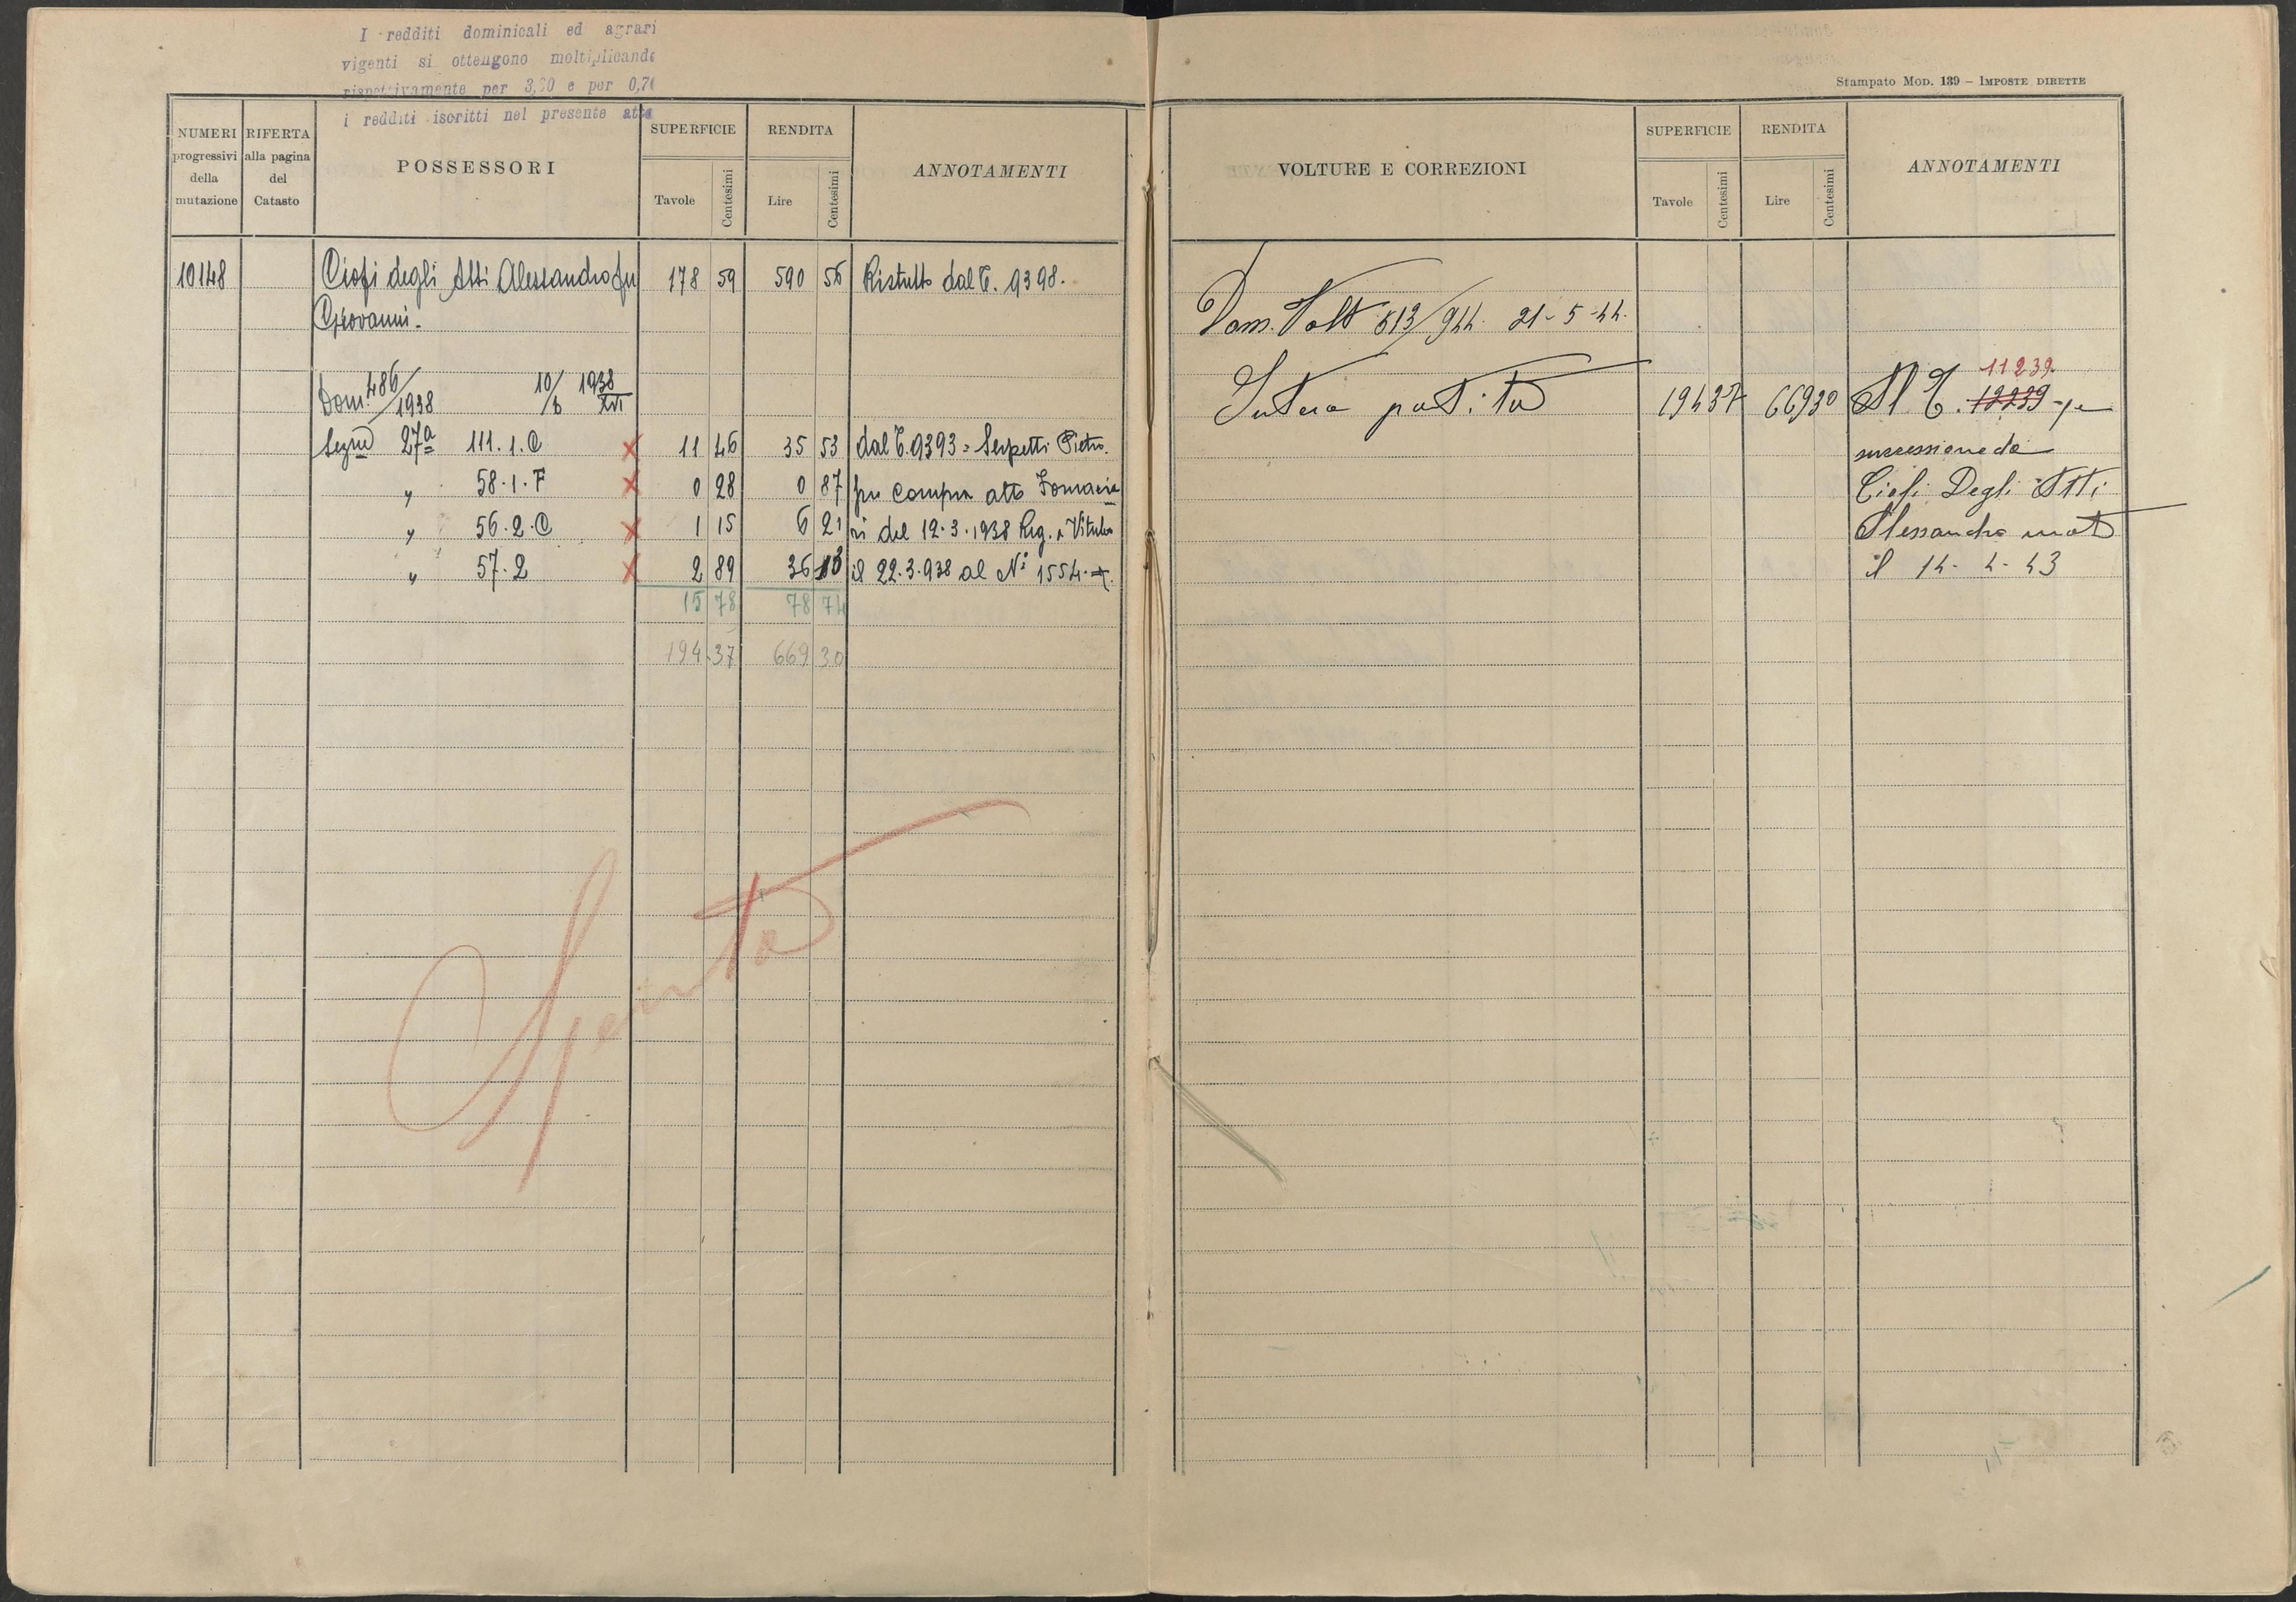 I redditi dominicali ed agrari
vigenti si ottengono moltiplicando
rispettivamente per 3,20 e per 0,70
i redditi iscritti nel presente atto
NUMERI progressivi della mutazione
RIFERTA alla pagina del Catasto
POSSESSORI
SUPERFICIE Tavole Centesimi
RENDITA Lire Centesimi
ANNOTAMENTI
10148 Ciofi degli Atti Alessandro fu 178 59 590 56 Ristretto dal T. 9398.
Giovanni.
Dom. 486/1938 10/6 1938 XVI
Sezne 27a 111.1.C x 11 46 35 53 dal T. 9393 = Serpetti Pietro.
" 58.1.F x 0 28 0 87 per compra atto Fornacia
" 56.2.C x 1 15 6 21 ri del 12.3.1938 Reg. a Viterbo
" 57.2 x 2 89 36 13 il 22.3.938 al N° 1554.
15 78 78 74
194.37 669 30
Spenta
Stampato Mod. 139 – Imposte dirette
VOLTURE E CORREZIONI
SUPERFICIE Tavole Centesimi
RENDITA Lire Centesimi
ANNOTAMENTI
Dom. Volt 613/944. 21-5-44.
11239.
Intera partita 194 37 669 30 Al T. 12239 - per
successione da
Ciofi Degli Atti
Alessandro mort
il 14-4-43